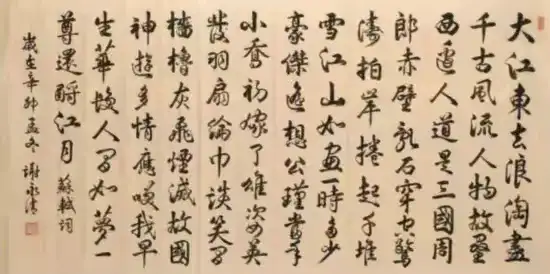 大江東去浪淘盡
千古風流人物故壘
西邊人道是三國周
郎赤壁乱石穿空驚
濤拍岸捲起千堆
雪江山如畫一時多少
豪傑遙想公瑾當年
小喬初嫁了雄姿英
發羽扇綸巾談笑間
檣櫓灰飛煙滅故國
神遊多情應笑我早
生華髮人間如夢一
尊還酹江月 蘇軾詞
歲在辛卯孟冬 謝